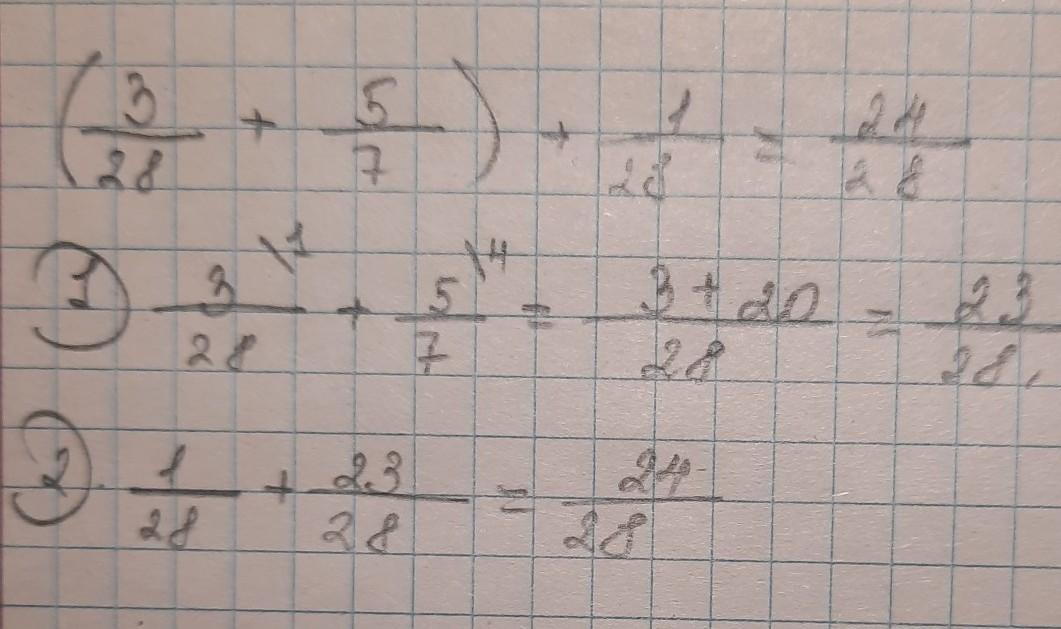 (3/28 + 5/7) + 1/28 = 24/28
① 3/28 \1 + 5/7 \4 = 3+20/28 = 23/28.
② 1/28 + 23/28 = 24/28